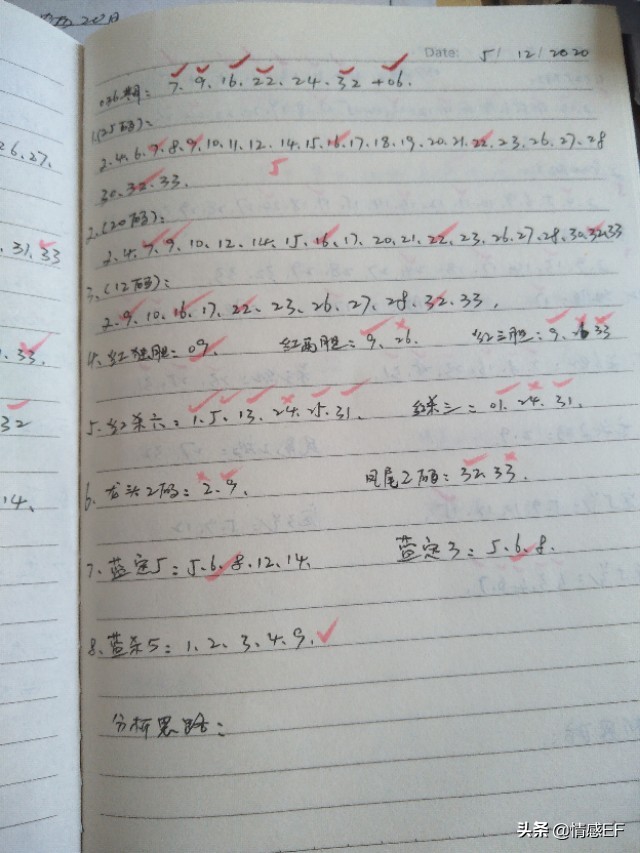 Date: 5 / 12 / 2020
036期: 7、9、16、22、24、32 +06.
1.(25码):
2.4.6.7.8.9.10.11.12.14.15.16.17.18.19.20.21.22.23.26.27.28
30.32.33.
5
2.(20码):
2.4.7.9.10.12.14.15.16.17.20.21.22.23.26.27.28.30.32.33
3.(12码):
2.9.10.16.17.22.23.26.27.28.32.33.
4.红独胆: 09. 红两胆: 9、26. 红三胆: 9、26 33
5.红杀六: 1.5.13.24.25.31. 红杀三: 01.24.31.
6.龙头2码: 2、9. 凤尾2码: 32 33.
7.蓝定5: 5.6.8.12.14. 蓝定3: 5.6.8.
8.蓝杀5: 1、2、3、4、9.
分析思路:
26.27.
31.33
33.
32
14、
头条 @情感EF